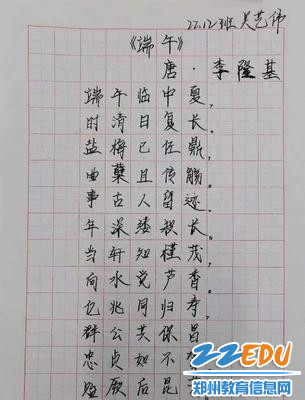 22.12班 吴艺伟
《端午》
唐·李隆基
端午临中夏,
时清日复长。
盐梅已佐鼎,
曲蘖且传觞。
事古人留迹,
年深缕积长。
当轩知槿茂,
向水觉芦香。
忆兆同归寿,
群公共保昌
忠贞如不
贻厥后昆
22EDU
郑州教育信息网